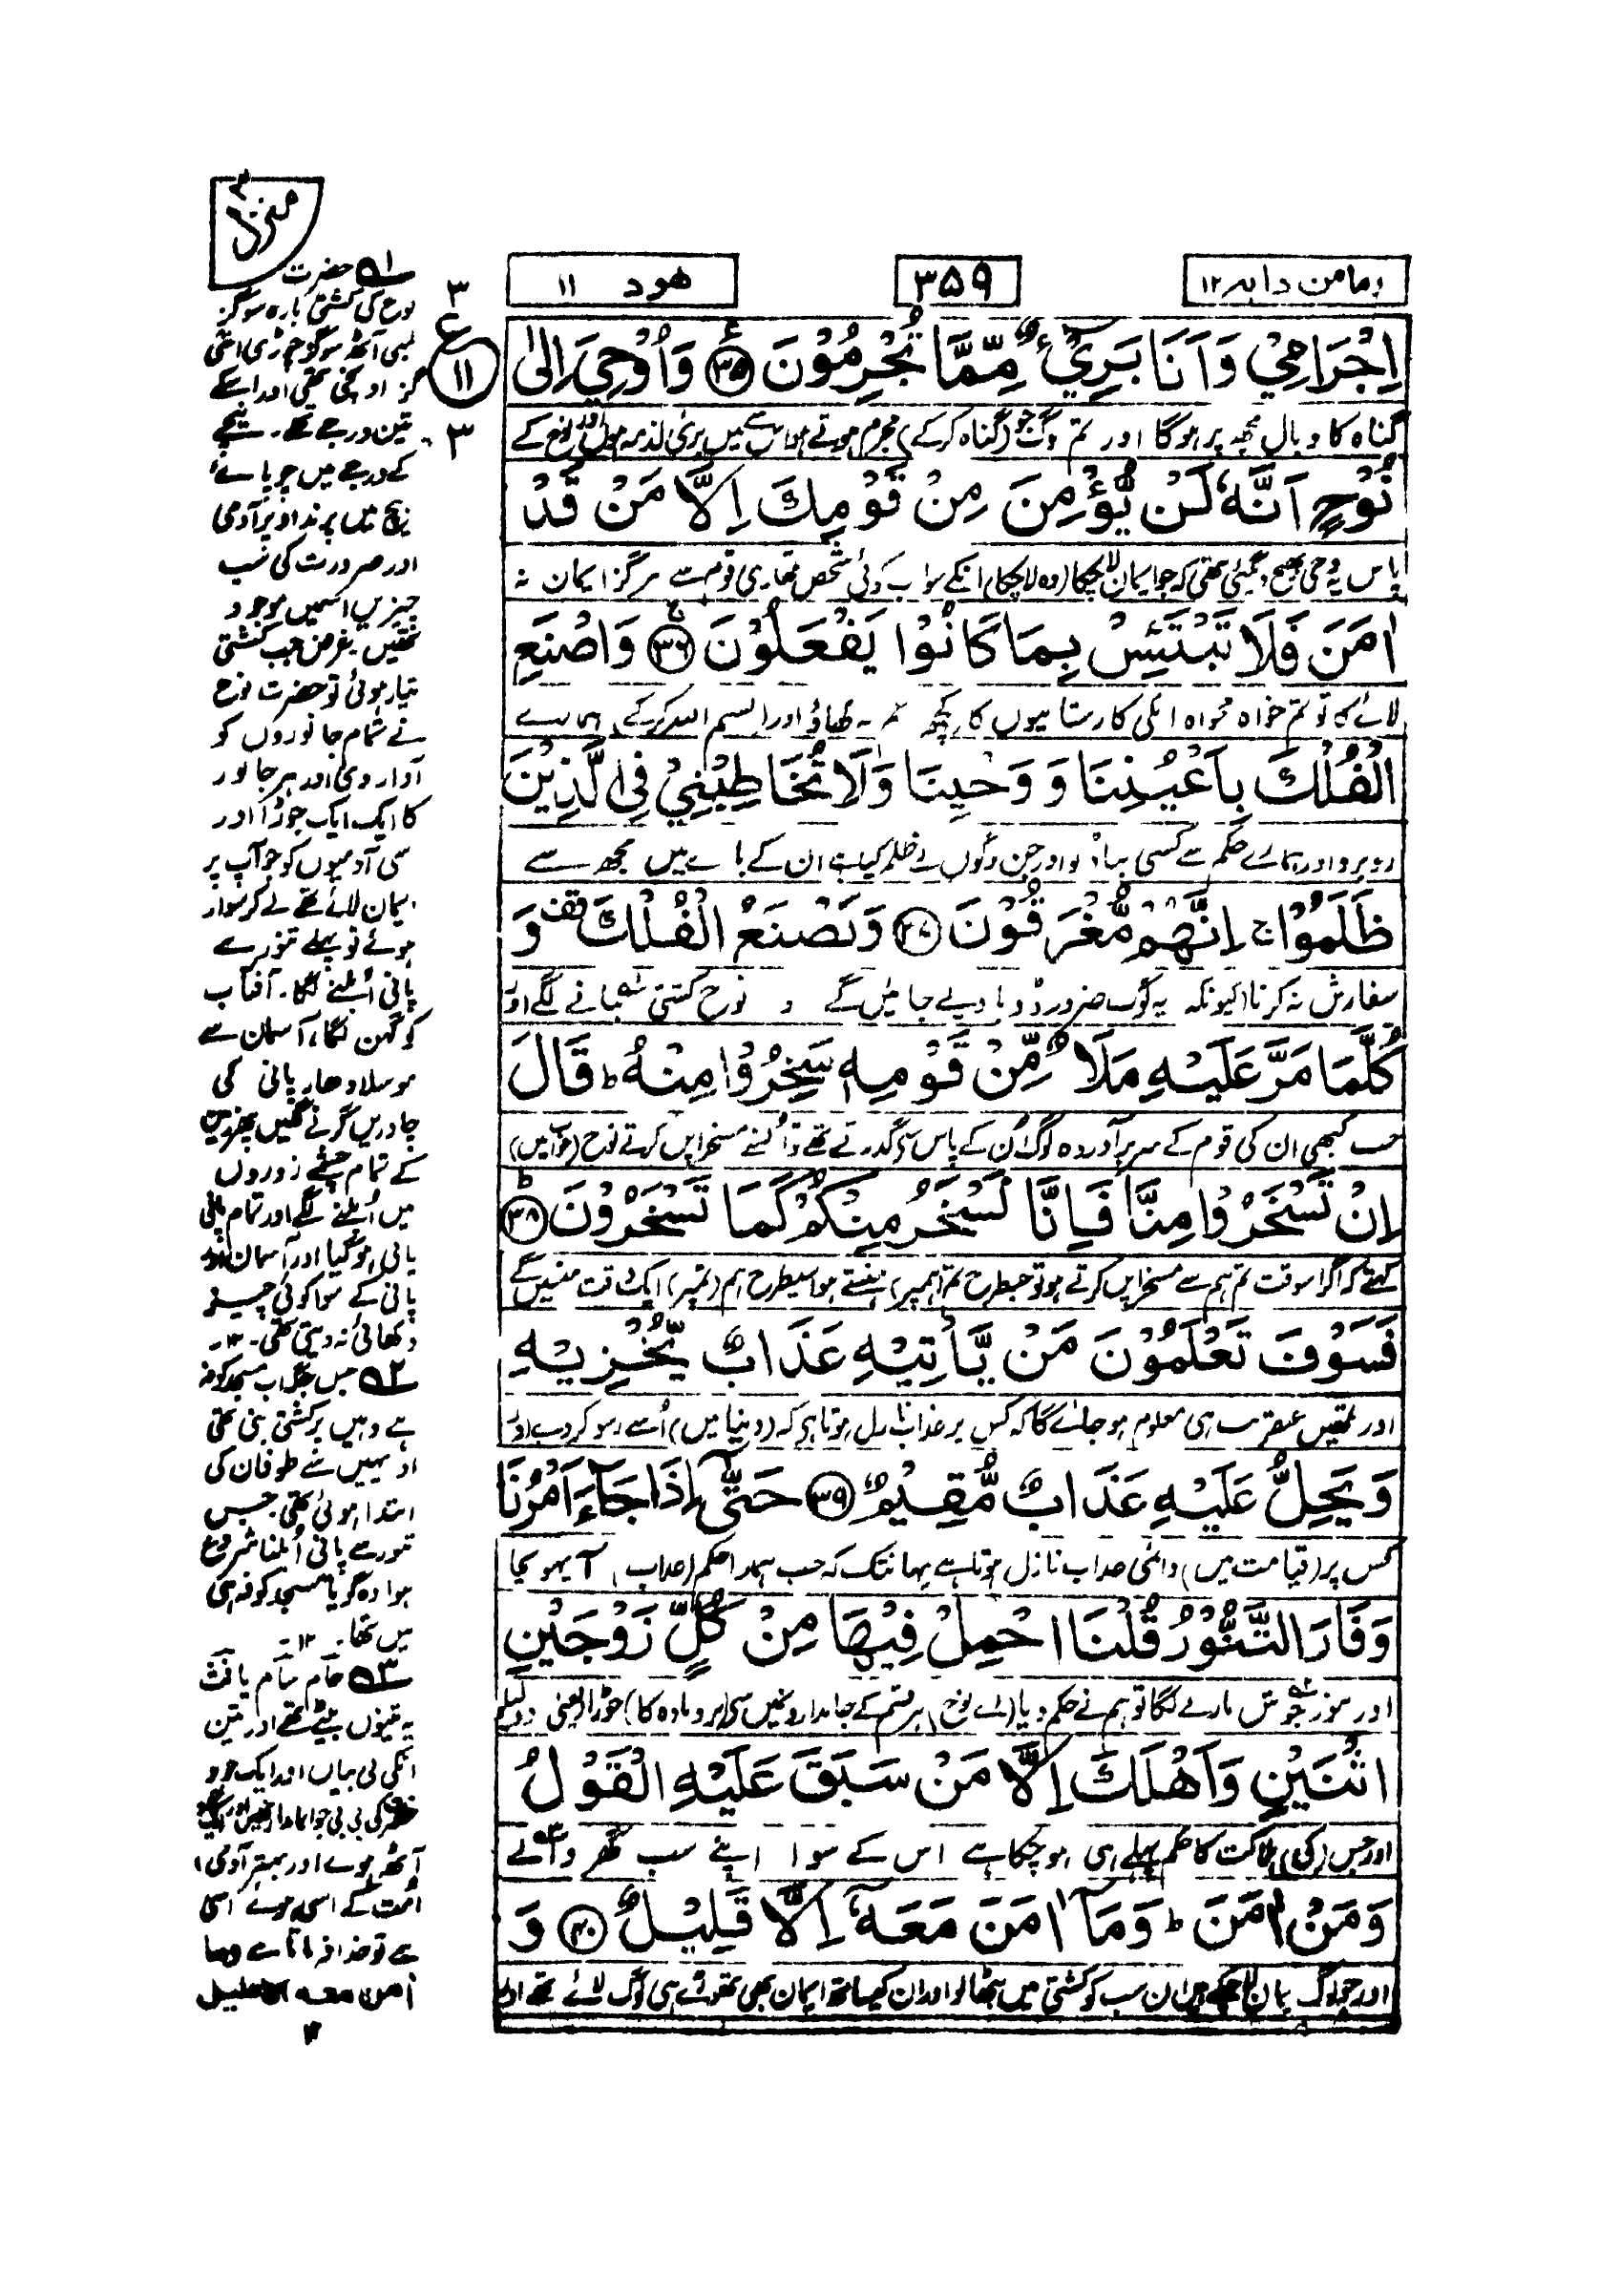 ومامن دابہ ۱۲
۳۵۹
ھود ۱۱
اِجْرَامِیْ وَاَنَا بَرِیْٓءٌ مِّمَّا تُجْرِمُوْنَ ۳۵ وَاُوْحِیَ اِلٰی
گناہ کا وبال مجھ پر ہوگا اور تم لوگ جو (گناہ کر کے) مجرم ہوتے ہو اس سے میں بری الذمہ ہوں اور نوح کے
نُوْحٍ اَنَّهٗ لَنْ یُّؤْمِنَ مِنْ قَوْمِكَ اِلَّا مَنْ قَدْ
پاس یہ وحی بھیج دیگئی تھی کہ جو ایمان لا چکا (وہ لا چکا) انکے سوا اب کوئی شخص تمھاری قوم سے ہرگز ایمان نہ
اٰمَنَ فَلَا تَبْتَىِٕسْ بِمَا كَانُوْا یَفْعَلُوْنَ ۳۶ وَاصْنَعِ
لائے گا تو تم خواہ مخواہ انکی کارستانیوں کا کچھ غم نہ کھاؤ اور بسم اللہ کر کے ہمارے
الْفُلْكَ بِاَعْیُنِنَا وَ وَحْیِنَا وَلَا تُخَاطِبْنِیْ فِی الَّذِیْنَ
روبرو اور ہمارے حکم سے کشتی بناؤ اور جن لوگوں نے ظلم کیا ہے ان کے بارے میں مجھ سے
ظَلَمُوْا ۚ اِنَّهُمْ مُّغْرَقُوْنَ ۳۷ وَیَصْنَعُ الْفُلْكَ وقفہ وَ
سفارش نہ کرنا کیونکہ یہ لوگ ضرور ڈوبا دیے جائیں گے و نوح کشتی بنانے لگے اور
كُلَّمَا مَرَّ عَلَیْهِ مَلَاٌ مِّنْ قَوْمِهٖ سَخِرُوْا مِنْهُ ؕ قَالَ
جب کبھی ان کی قوم کے سربرآوردہ لوگ اُن کے پاس سے گذرتے تھے تو اُنسے مسخراپن کرتے نوح (جواب میں)
اِنْ تَسْخَرُوْا مِنَّا فَاِنَّا نَسْخَرُ مِنْكُمْ كَمَا تَسْخَرُوْنَ ؕ ۳۸
کہتے کہ اگر اسوقت تم ہم سے مسخراپن کرتے ہو تو جسطرح تم (ہمپر) ہنستے ہو اسیطرح ہم (تمپر) ایک وقت ہنسیں گے
فَسَوْفَ تَعْلَمُوْنَ مَنْ یَّاْتِیْهِ عَذَابٌ یُّخْزِیْهِ
اور تمھیں عنقریب ہی معلوم ہو جائے گا کہ کس پر عذاب نازل ہوتا ہے کہ (دنیا میں) اُسے رسوا کر دے اور
وَیَحِلُّ عَلَیْهِ عَذَابٌ مُّقِیْمٌ ۳۹ حَتّٰۤی اِذَا جَآءَ اَمْرُنَا
کس پر (قیامت میں) دائمی عذاب نازل ہوتا ہے یہانتک کہ جب ہمارا حکم (عذاب) آ پہونچا
وَفَارَ التَّنُّوْرُ قُلْنَا احْمِلْ فِیْهَا مِنْ كُلٍّ زَوْجَیْنِ
اور تنور جوش مارنے لگا تو ہم نے حکم دیا (اے نوح) ہر قسم کے جانداروں میں سے (نر و مادہ کا) جوڑا یعنی دو دو لیلو
اثْنَیْنِ وَاَهْلَكَ اِلَّا مَنْ سَبَقَ عَلَیْهِ الْقَوْلُ
اور جس (کی) ہلاکت کا حکم پہلے ہی ہو چکا ہے اس کے سوا اپنے سب گھر والے
وَمَنْ اٰمَنَ ؕ وَمَاۤ اٰمَنَ مَعَهٗۤ اِلَّا قَلِیْلٌ ۴۰ وَ
اور جو لوگ ایمان لا چکے ہیں ان سب کو کشتی میں بٹھا لو اور ان کے ساتھ ایمان بھی تھوڑے ہی لوگ لائے تھے اور
منزل ۳
۳
ع
۱۱
۳
۱ حضرت
نوح کی کشتی بارہ سو گز
لمبی آٹھ سو گز چوڑی اسّی
گز اونچی تھی اور اسکے
تین درجے تھے۔ نیچے
کے درجے میں چوپائے
بیچ میں پرند اوپر آدمی
اور ضرورت کی سب
چیزیں اسمیں موجود
تھیں۔ غرض جب کشتی
تیار ہوئی تو حضرت نوح
نے تمام جانوروں کو
آواز دی اور ہر جانور
کا ایک ایک جوڑا اور
اسی آدمیوں کو جو آپ پر
ایمان لائے تھے لے کر سوار
ہوئے تو پہلے تنور سے
پانی اُبلنے لگا۔ آفتاب
کو گہن لگا، آسمان سے
موسلادھار پانی کی
چادریں گرنے لگیں پھر زمین
کے تمام چشمے زوروں
میں اُبلنے لگے اور تمام پانی
پانی ہو گیا اور آسمان اور
پانی کے سوا کوئی چیز
دکھائی نہ دیتی تھی۔ ۱۲۔
۲ جس جگہ اب مسجد کوفہ
ہے وہیں پر کشتی بنی تھی
اور یہیں سے طوفان کی
ابتدا ہوئی تھی جس
تنور سے پانی اُبلنا شروع
ہوا وہ گویا مسجد کوفہ ہی
میں تھا۔ ۱۲۔
۳ حام سام یافث
یہ تینوں بیٹے تھے اور تین
انکی بی بیاں اور ایک خود
آٹھ ہوے اور بہتر آدمی
اُمت کے اسی ہوے اسی
سے تو خدا فرماتا ہے وما
اٰمن معہ الا قلیل
۱۲